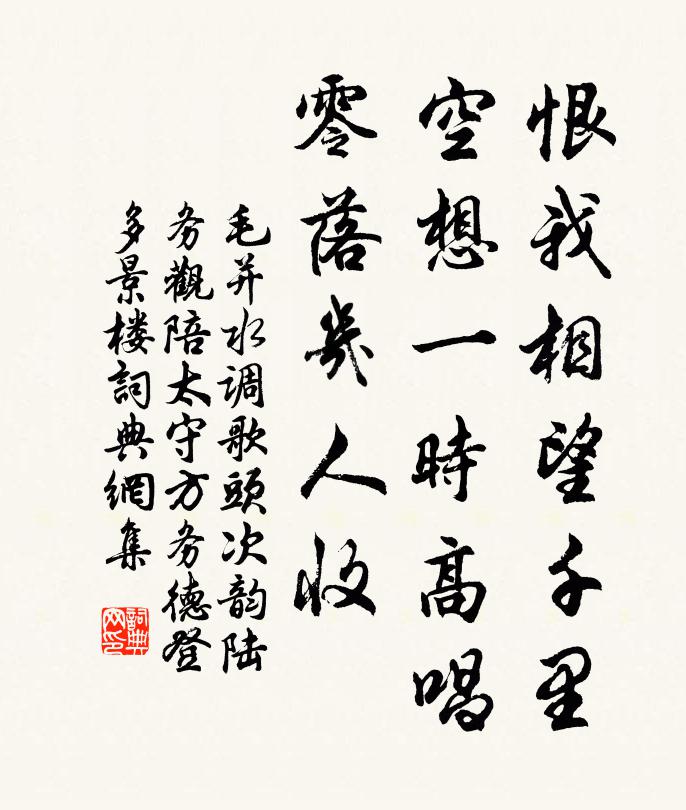 恨我相望千里
空想一時高唱
零落幾人收
毛并水调歌頭次韵陆
务觀陪太守方务德登
多景楼詞典網集
詞典网印